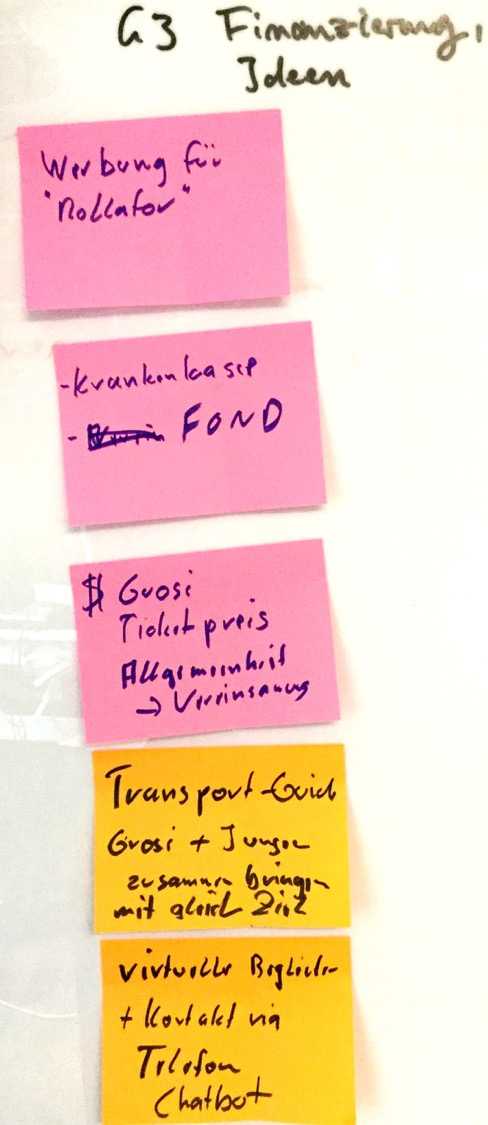 G3 Finanzierung,
Ideen
Werbung für
"Rollator"
- Krankenkasse
- FOND
$ Grosi
Ticketpreis
Allgemeinheit
→ Vereinsamung
Transport-Guide
Grosi + Junge
zusammen bringen
mit gleich Ziel
virtuelle Begleiter
+ Kontakt via
Telefon
Chatbot